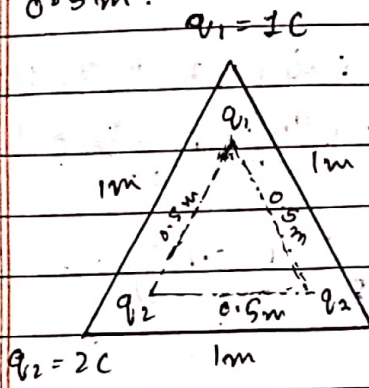 0.5m.
q₁ = 1C
q₁
1m
1m
0.5m
0.5m
q₂
0.5m
q₂
q₂ = 2C
1m